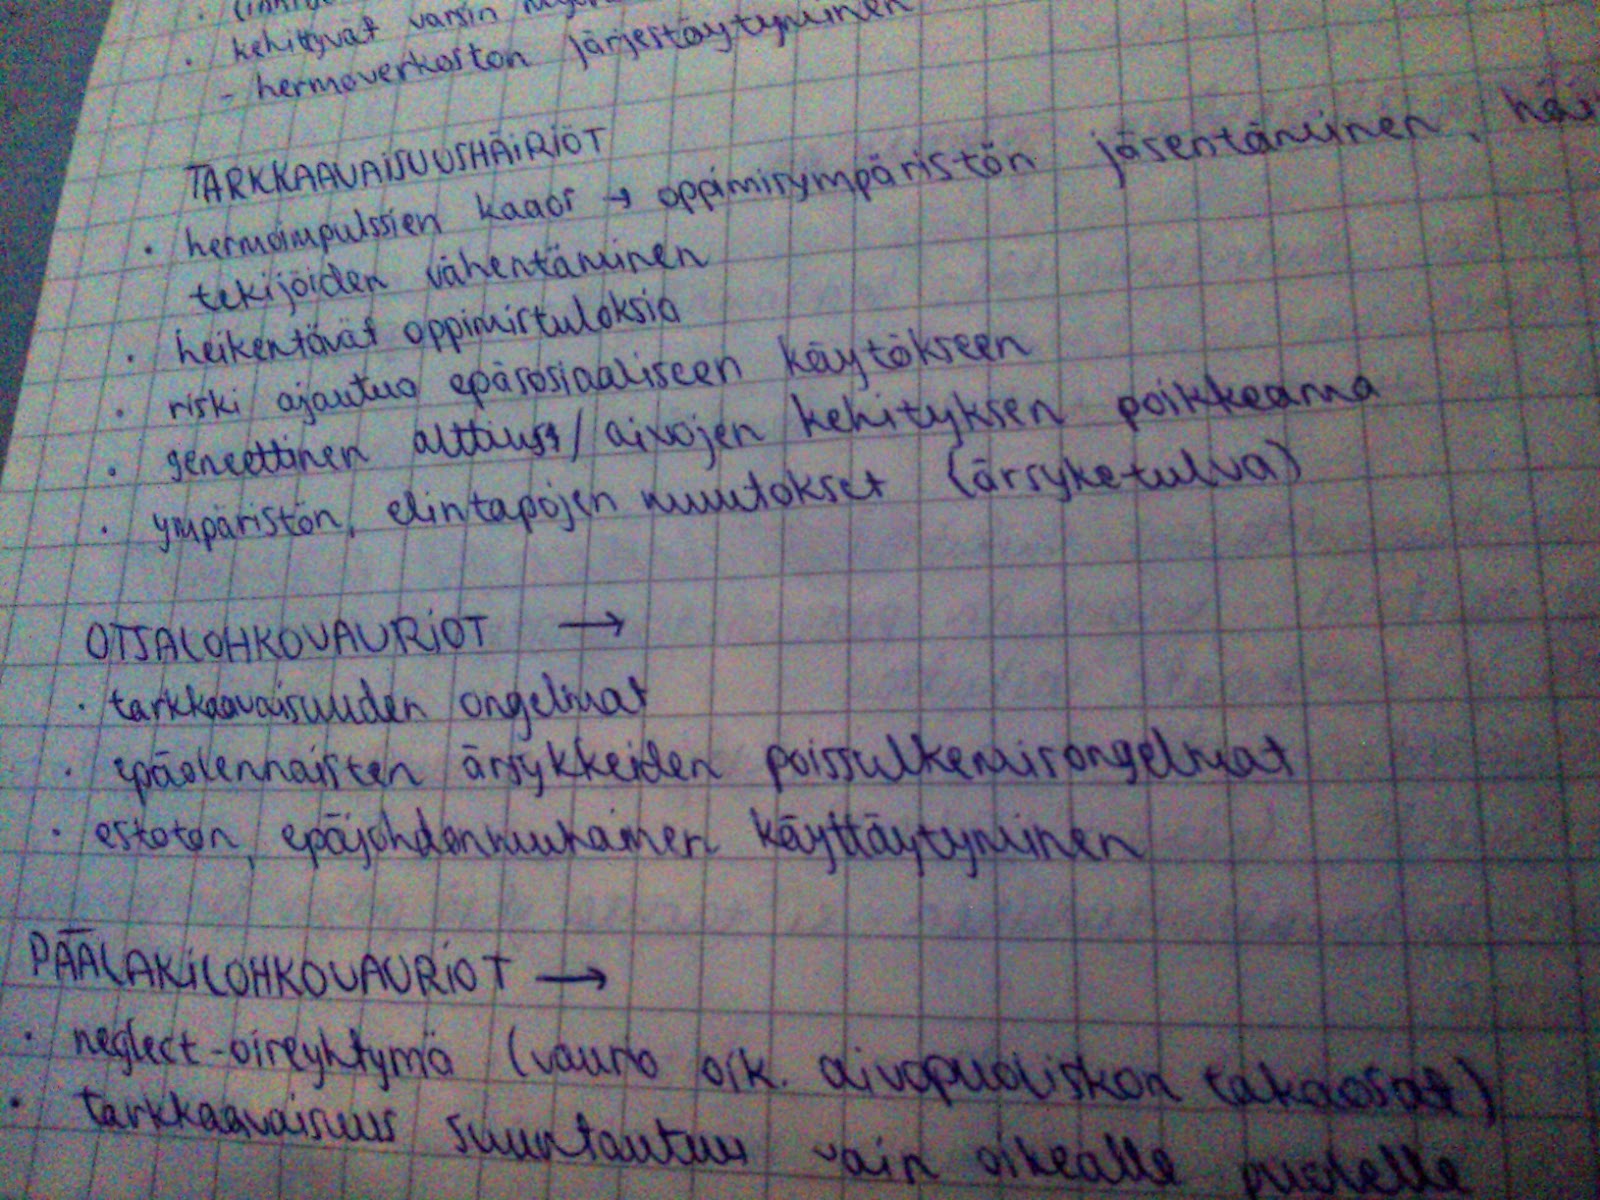 · kehittyvät varsin
- hermoverkoston järjestäytyminen
TARKKAAVAISUUSHÄIRIÖT
· hermoimpulssien kaaos → oppimisympäristön jäsentäminen, häi
tekijöiden vähentäminen
· heikentävät oppimistuloksia
· riski ajautua epäsosiaaliseen käytökseen
· geneettinen alttius/aivojen kehityksen poikkeama
· ympäristön, elintapojen muutokset (ärsyketulva)
OTSALOHKOVAURIOT →
· tarkkaavaisuuden ongelmat
· epäolennaisten ärsykkeiden poissulkemisongelmat
· estoton, epäjohdonmukainen käyttäytyminen
PÄÄLAKILOHKOVAURIOT →
· neglect-oireyhtymä (vaurio oik. aivopuoliskon takaosat)
· tarkkaavaisuus suuntautuu vain oikealle puolelle